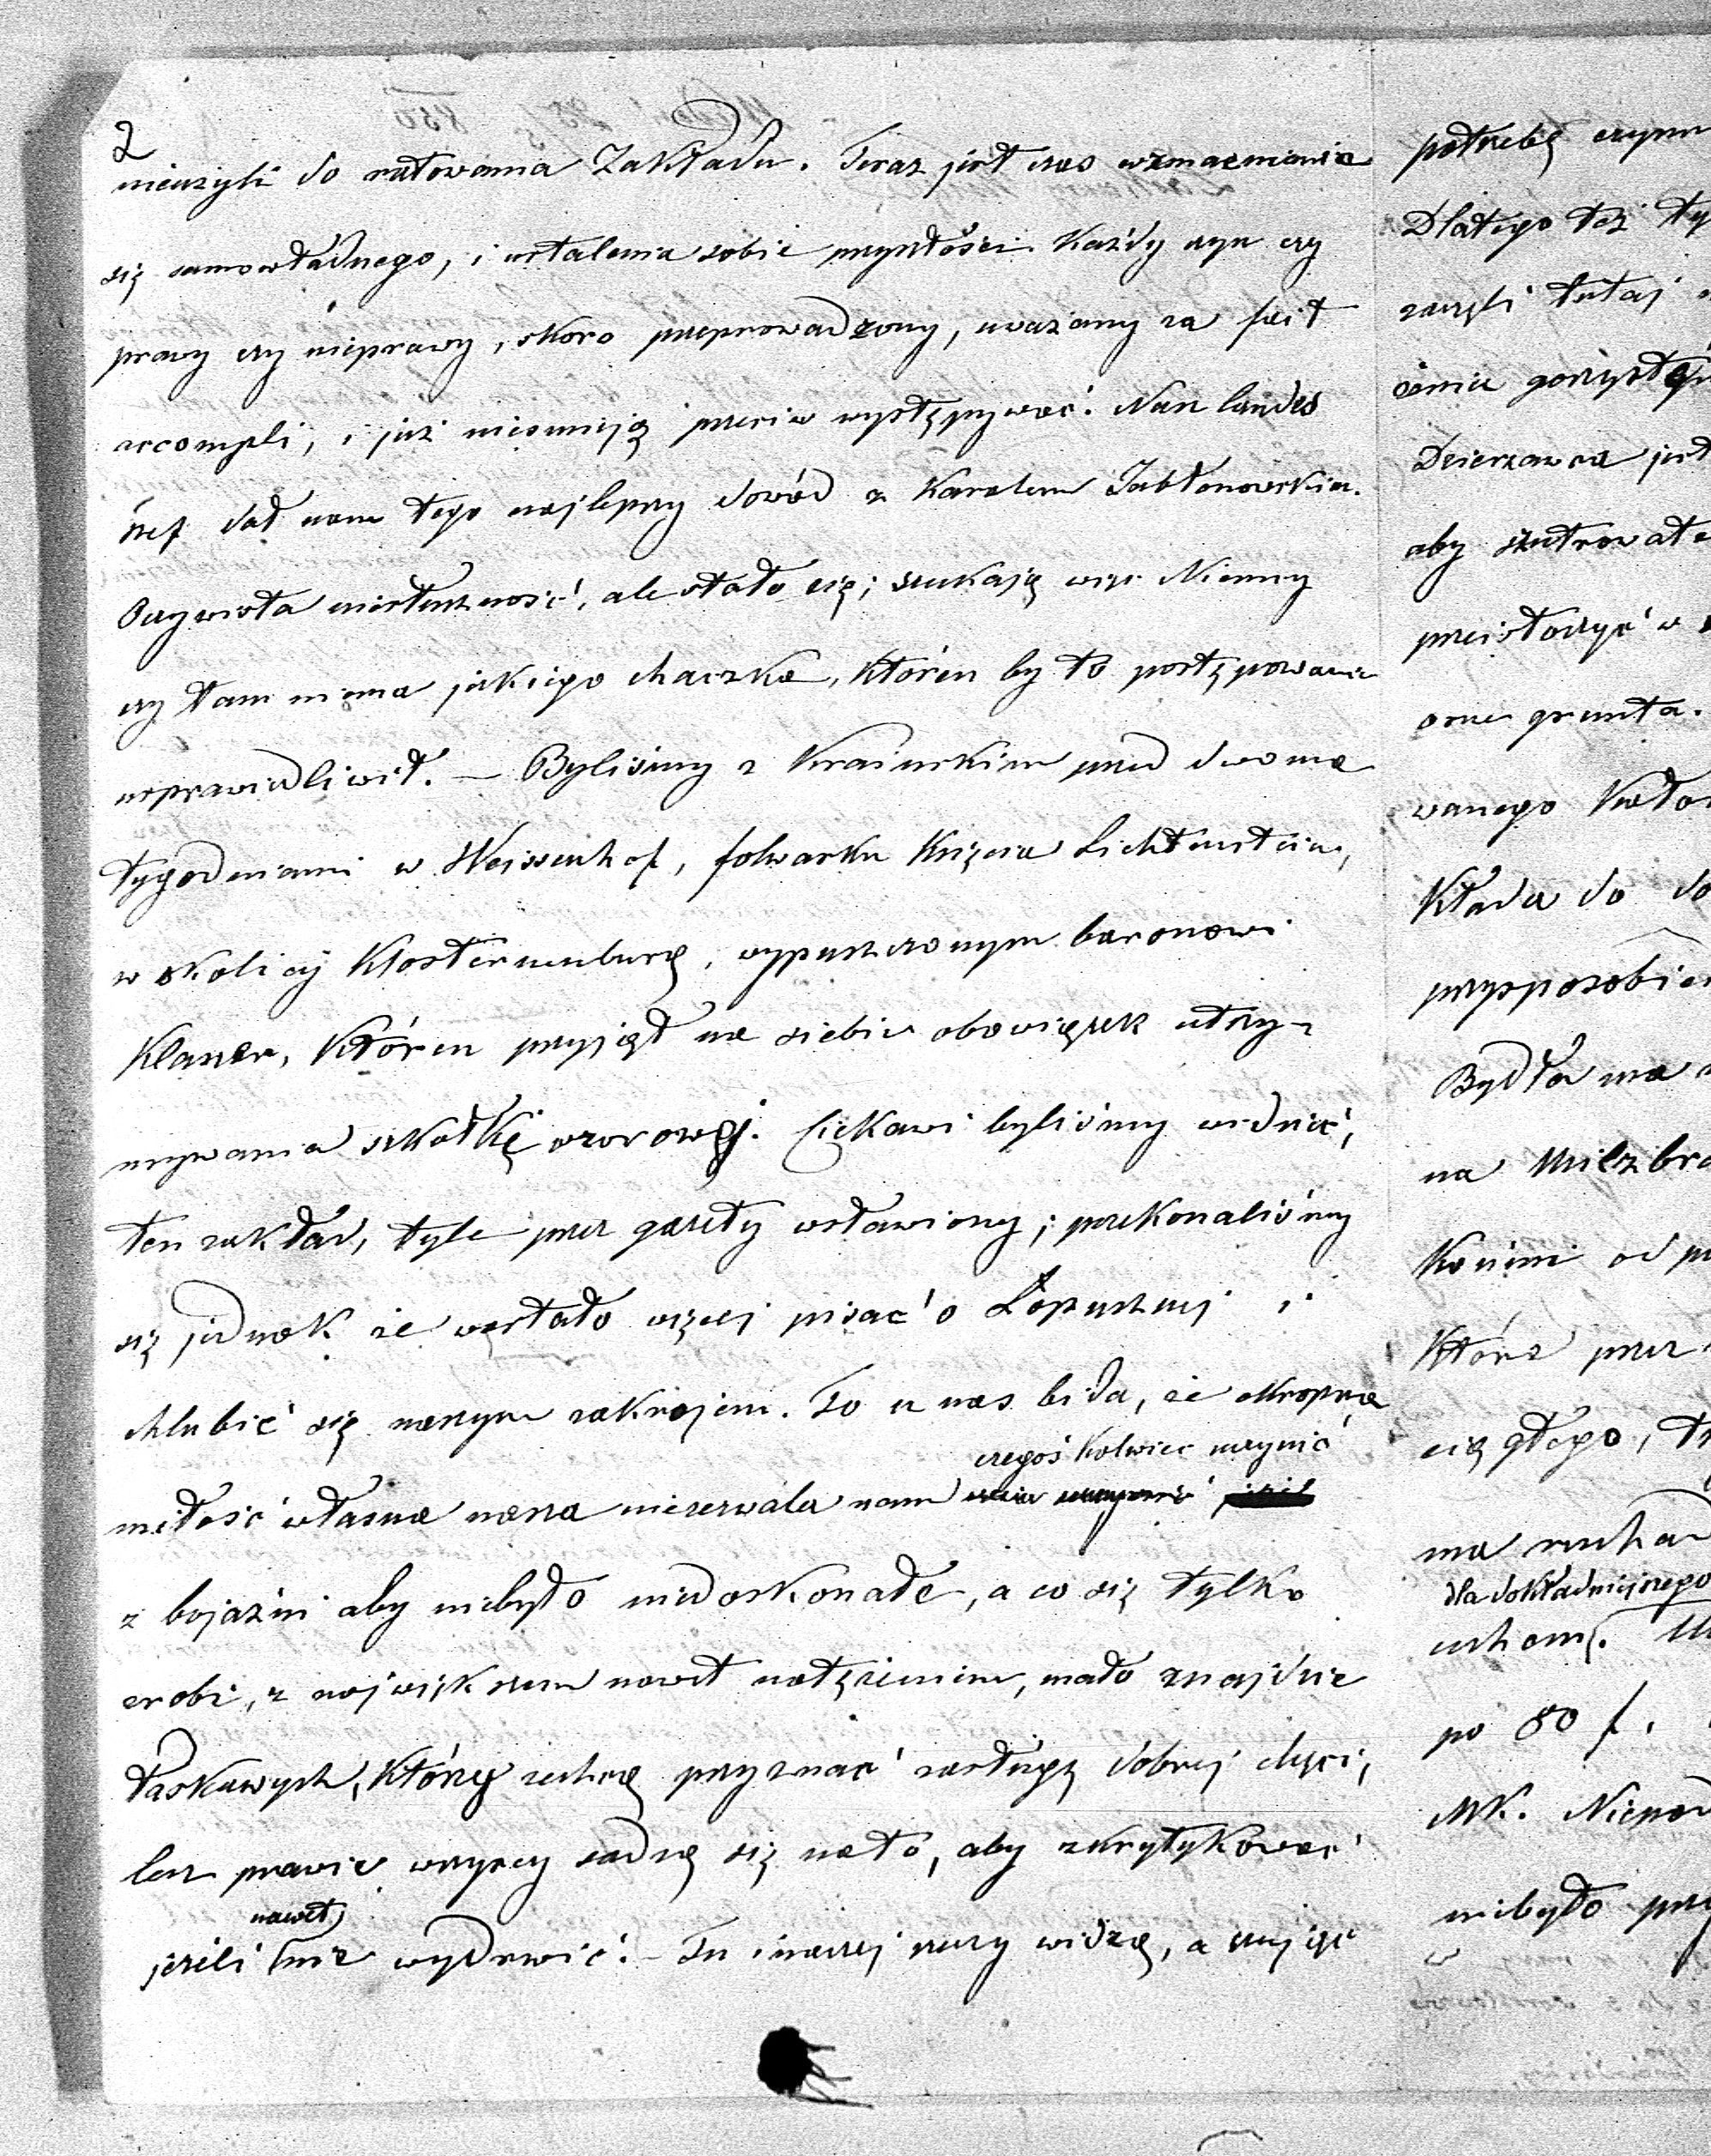 2
nieużyli do ratowania Zakładu. Teraz jest czas wzmacniania
się samowładnego, i ustalenia sobie przyszłości. Każdy czyn czy
prawy czy nieprawy, skoro przeprowadzony, uważany za fait
accompli, i już nieumieją przeciw występywać. Nasz landes
szef dał nam tego najlepszy dowód z Karolem Jabłonowskim.
Oczywista niesłuszność, ale stało się; szukają więc Niemcy
czy tam niema jakiego chaczka, któren by to postępowanie
usprawiedliwił. — Byliśmy z Krasuskim przed dwoma
tygodniami w Weissenhof, folwarku Księcia Lichtenstein,
w okolicy Klosterneuburg, wypuszczonym baronowi
Klaner, któren przyjął na siebie obowiązek utrzy-
mywania szkółkę wzorowej. Ciekawi byliśmy widzieć,
ten zakład, tyle przez gazety wsławiony; przekonaliśmy
się jednak że warstało więcej pisać o Łopusznej i
chlubić się naszym zakrojem. To u nas bida, że okropna
czegoś kolwiec uczynić
miłość własna nasza niezezwala nam
z bojaźni aby niebyło niedoskonałe, a co się tylko
zrobi, z największem nawet natężeniem, mało znajdzie
łaskawych, którzy zechcą przyznać zasługę dobrej chęci,
lecz prawie wszyscy sadzą się nato, aby zkrytykować
nawet
jeżeli nie wydrwić. — Tu inaczej rzeczy widzą, a czując
potrzebę czynn
Dlatego też ty
zaczęli tutaj
Dzierzawca jest
aby szutrowate
przeistoczyć w
orne grunta.
wanego
kłada do do
przysposobien
Bydła ma
na Milzbra
końmi od
która przez
ciągłego, tr
ma
dla dokładniejszego
po 80 f.
MK. Niepod
niebyło przy
w